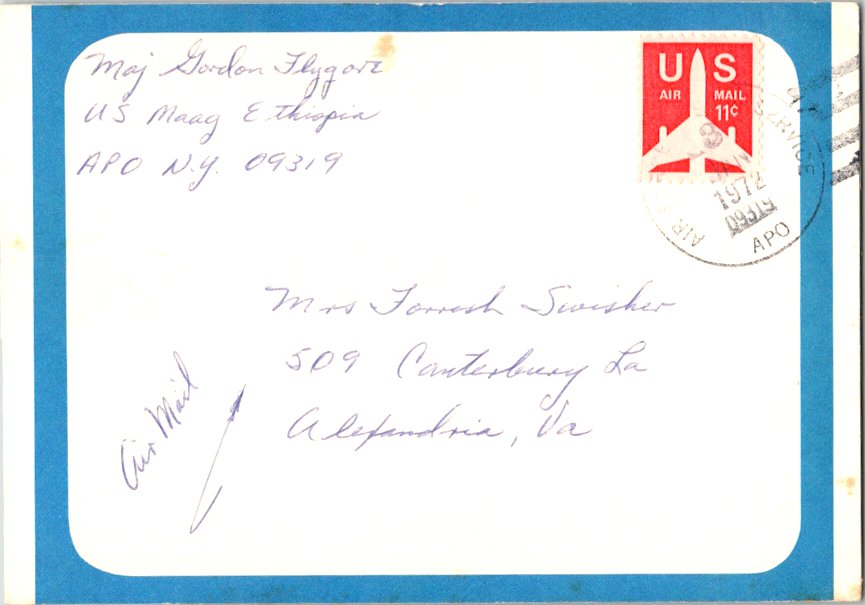 Maj Gordon Flygare
US Maag Ethiopia
APO N.Y. 09319
US
AIR MAIL
11¢
AIR SERVICE
JAN
1972
09319
APO
Mrs Forrest Swisher
509 Canterbury La
Alexandria, Va
Air Mail